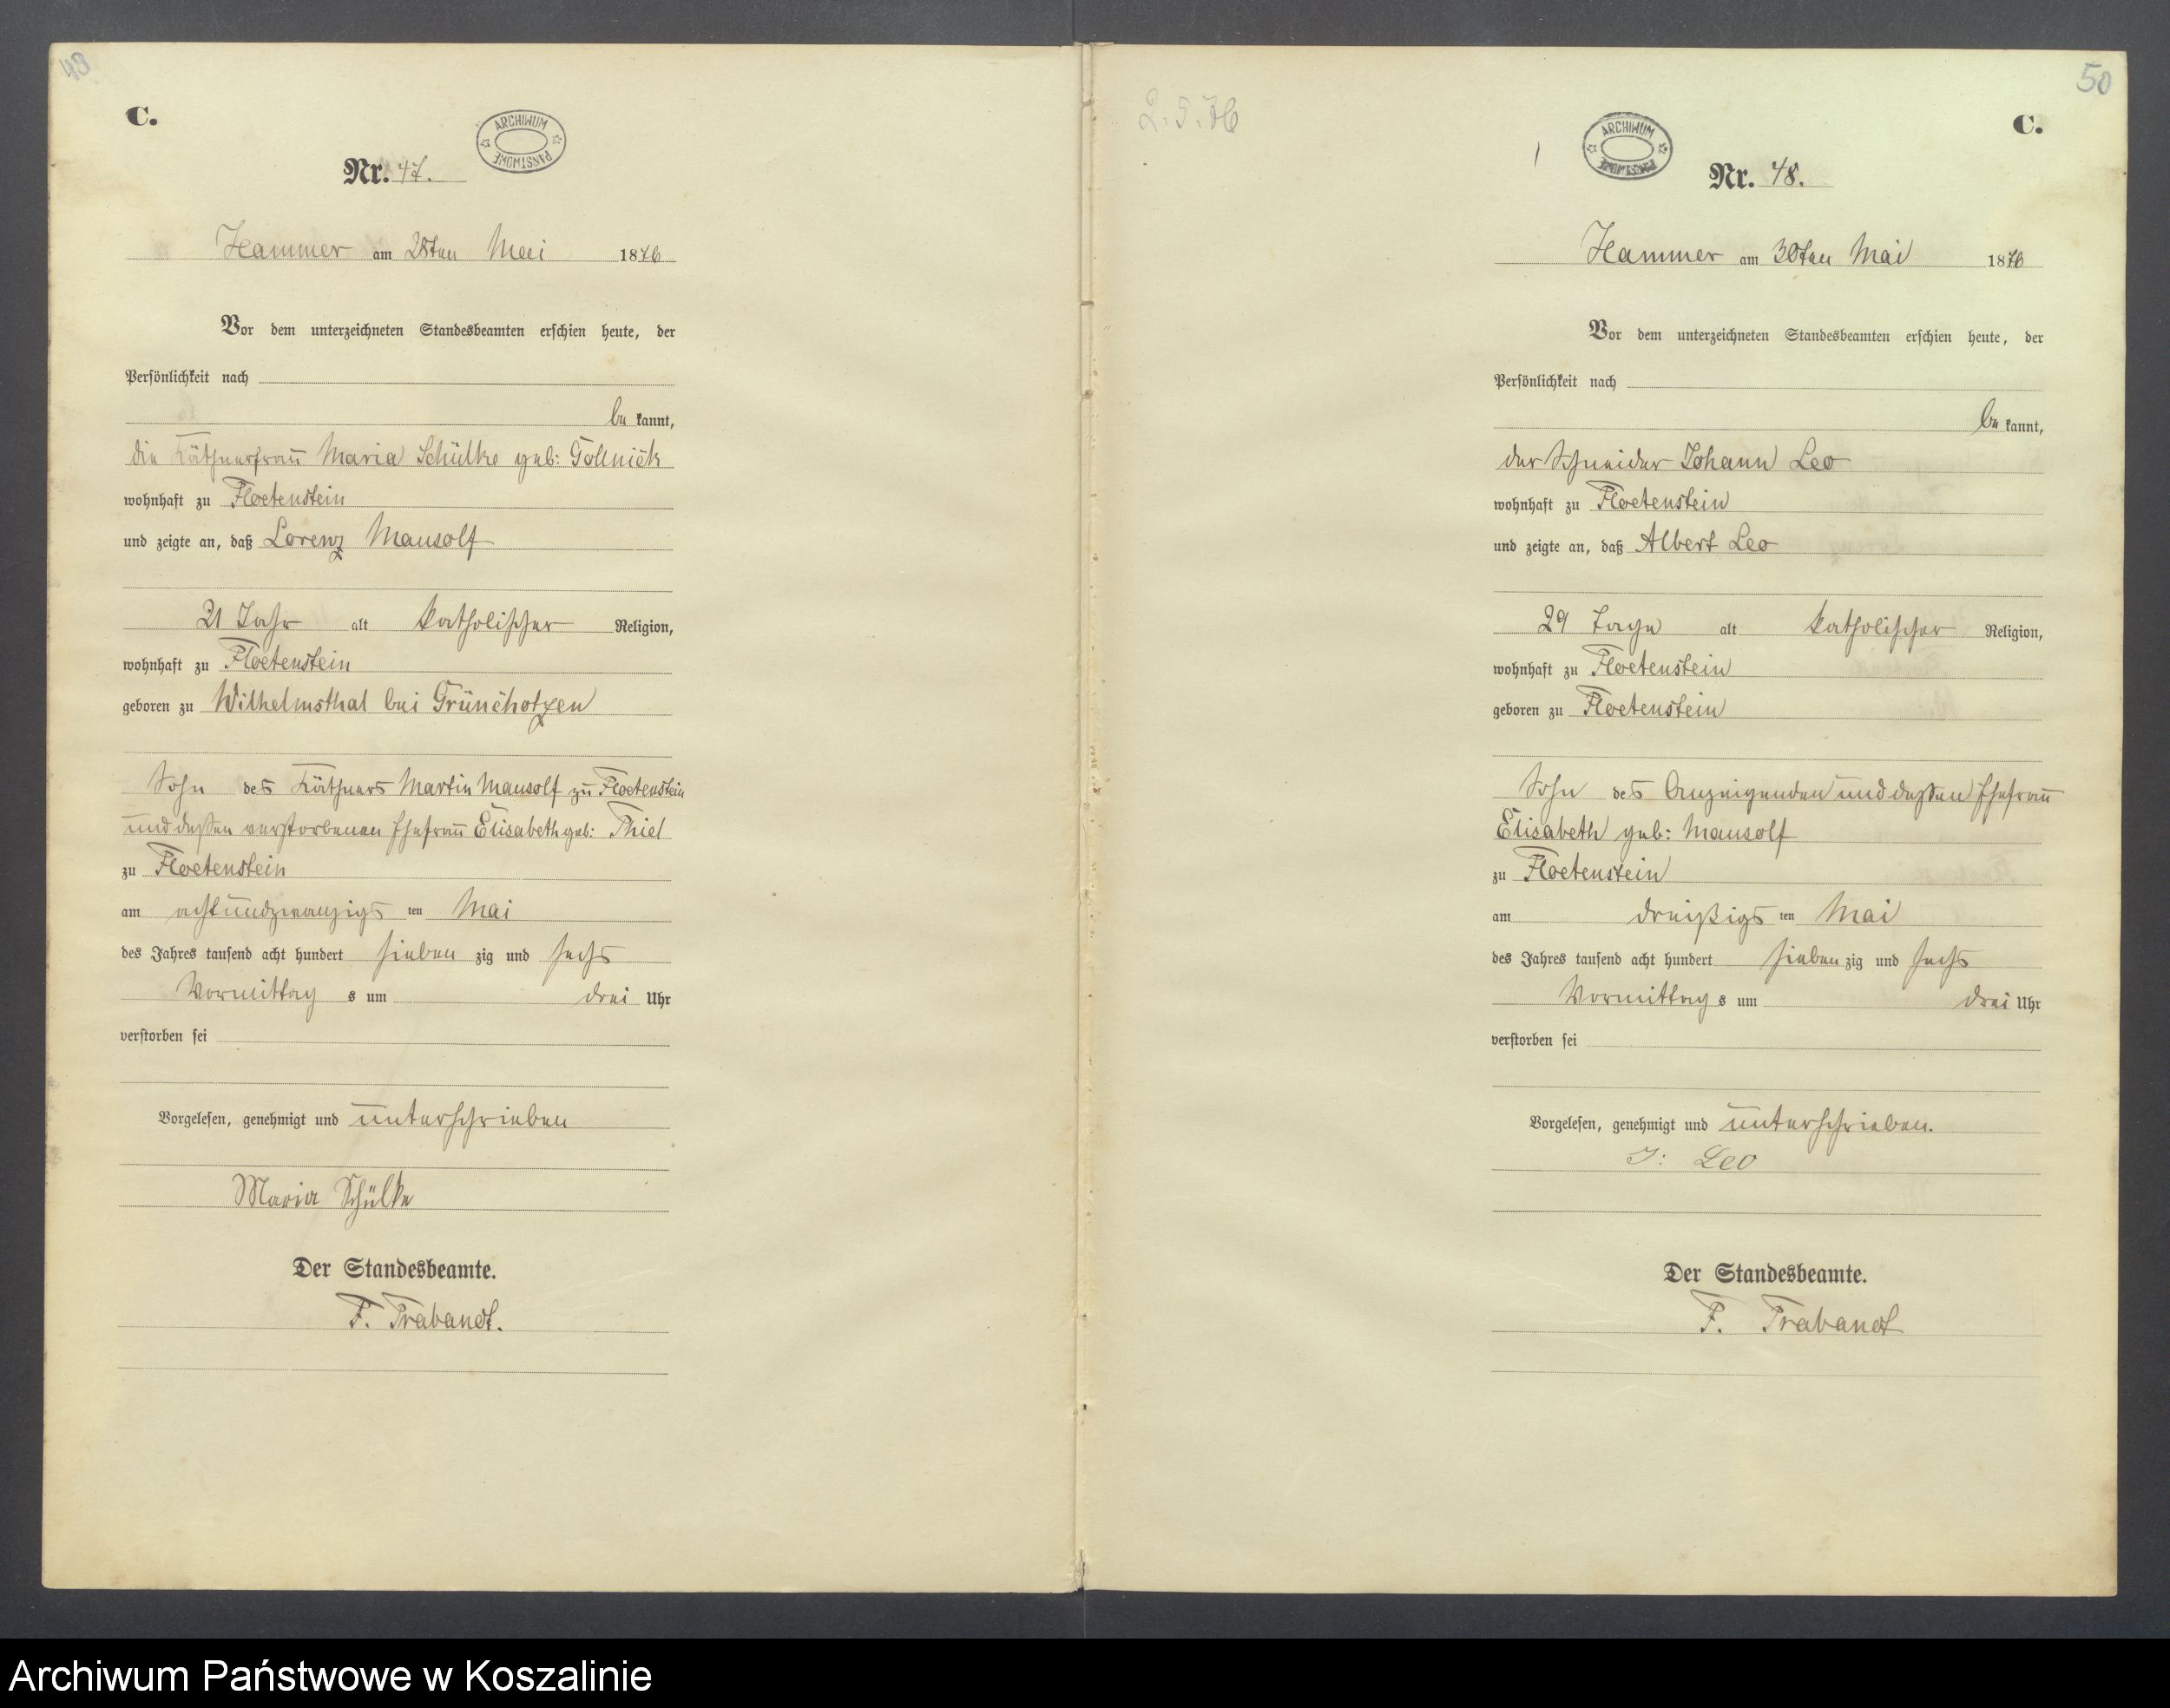 49
C.
ARCHIWUM PAŃSTWOWE
Nr. 47.
Hammer am 28ten Mai 1876
Vor dem unterzeichneten Standesbeamten erschien heute, der
Persönlichkeit nach
be kannt,
die Käthnerfrau Maria Schülke geb: Gollnick
wohnhaft zu Floetenstein
und zeigte an, daß Lorenz Mausolf
21 Jahr alt katholischer Religion,
wohnhaft zu Floetenstein
geboren zu Wilhelmsthal bei Grünchotzen
Sohn des Käthners Martin Mausolf zu Floetenstein
und deßen verstorbenen Ehefrau Elisabeth geb: Thiel
zu Floetenstein
am achtundzwanzigs ten Mai
des Jahres tausend acht hundert sieben zig und sechs
Vormittag s um drei Uhr
verstorben sei
Vorgelesen, genehmigt und unterschrieben
Maria Schülke
Der Standesbeamte.
F. Trabandt.
50
2.5.76
C.
ARCHIWUM PAŃSTWOWE
Nr. 48.
Hammer am 30ten Mai 1876
Vor dem unterzeichneten Standesbeamten erschien heute, der
Persönlichkeit nach
be kannt,
der Schneider Johann Leo
wohnhaft zu Floetenstein
und zeigte an, daß Albert Leo
29 Tage alt katholischer Religion,
wohnhaft zu Floetenstein
geboren zu Floetenstein
Sohn des Anzeigenden und deßen Ehefrau
Elisabeth geb: Mausolf
zu Floetenstein
am dreißigs ten Mai
des Jahres tausend acht hundert sieben zig und sechs
Vormittag s um drei Uhr
verstorben sei
Vorgelesen, genehmigt und unterschrieben.
J: Leo
Der Standesbeamte.
F. Trabandt
Archiwum Państwowe w Koszalinie